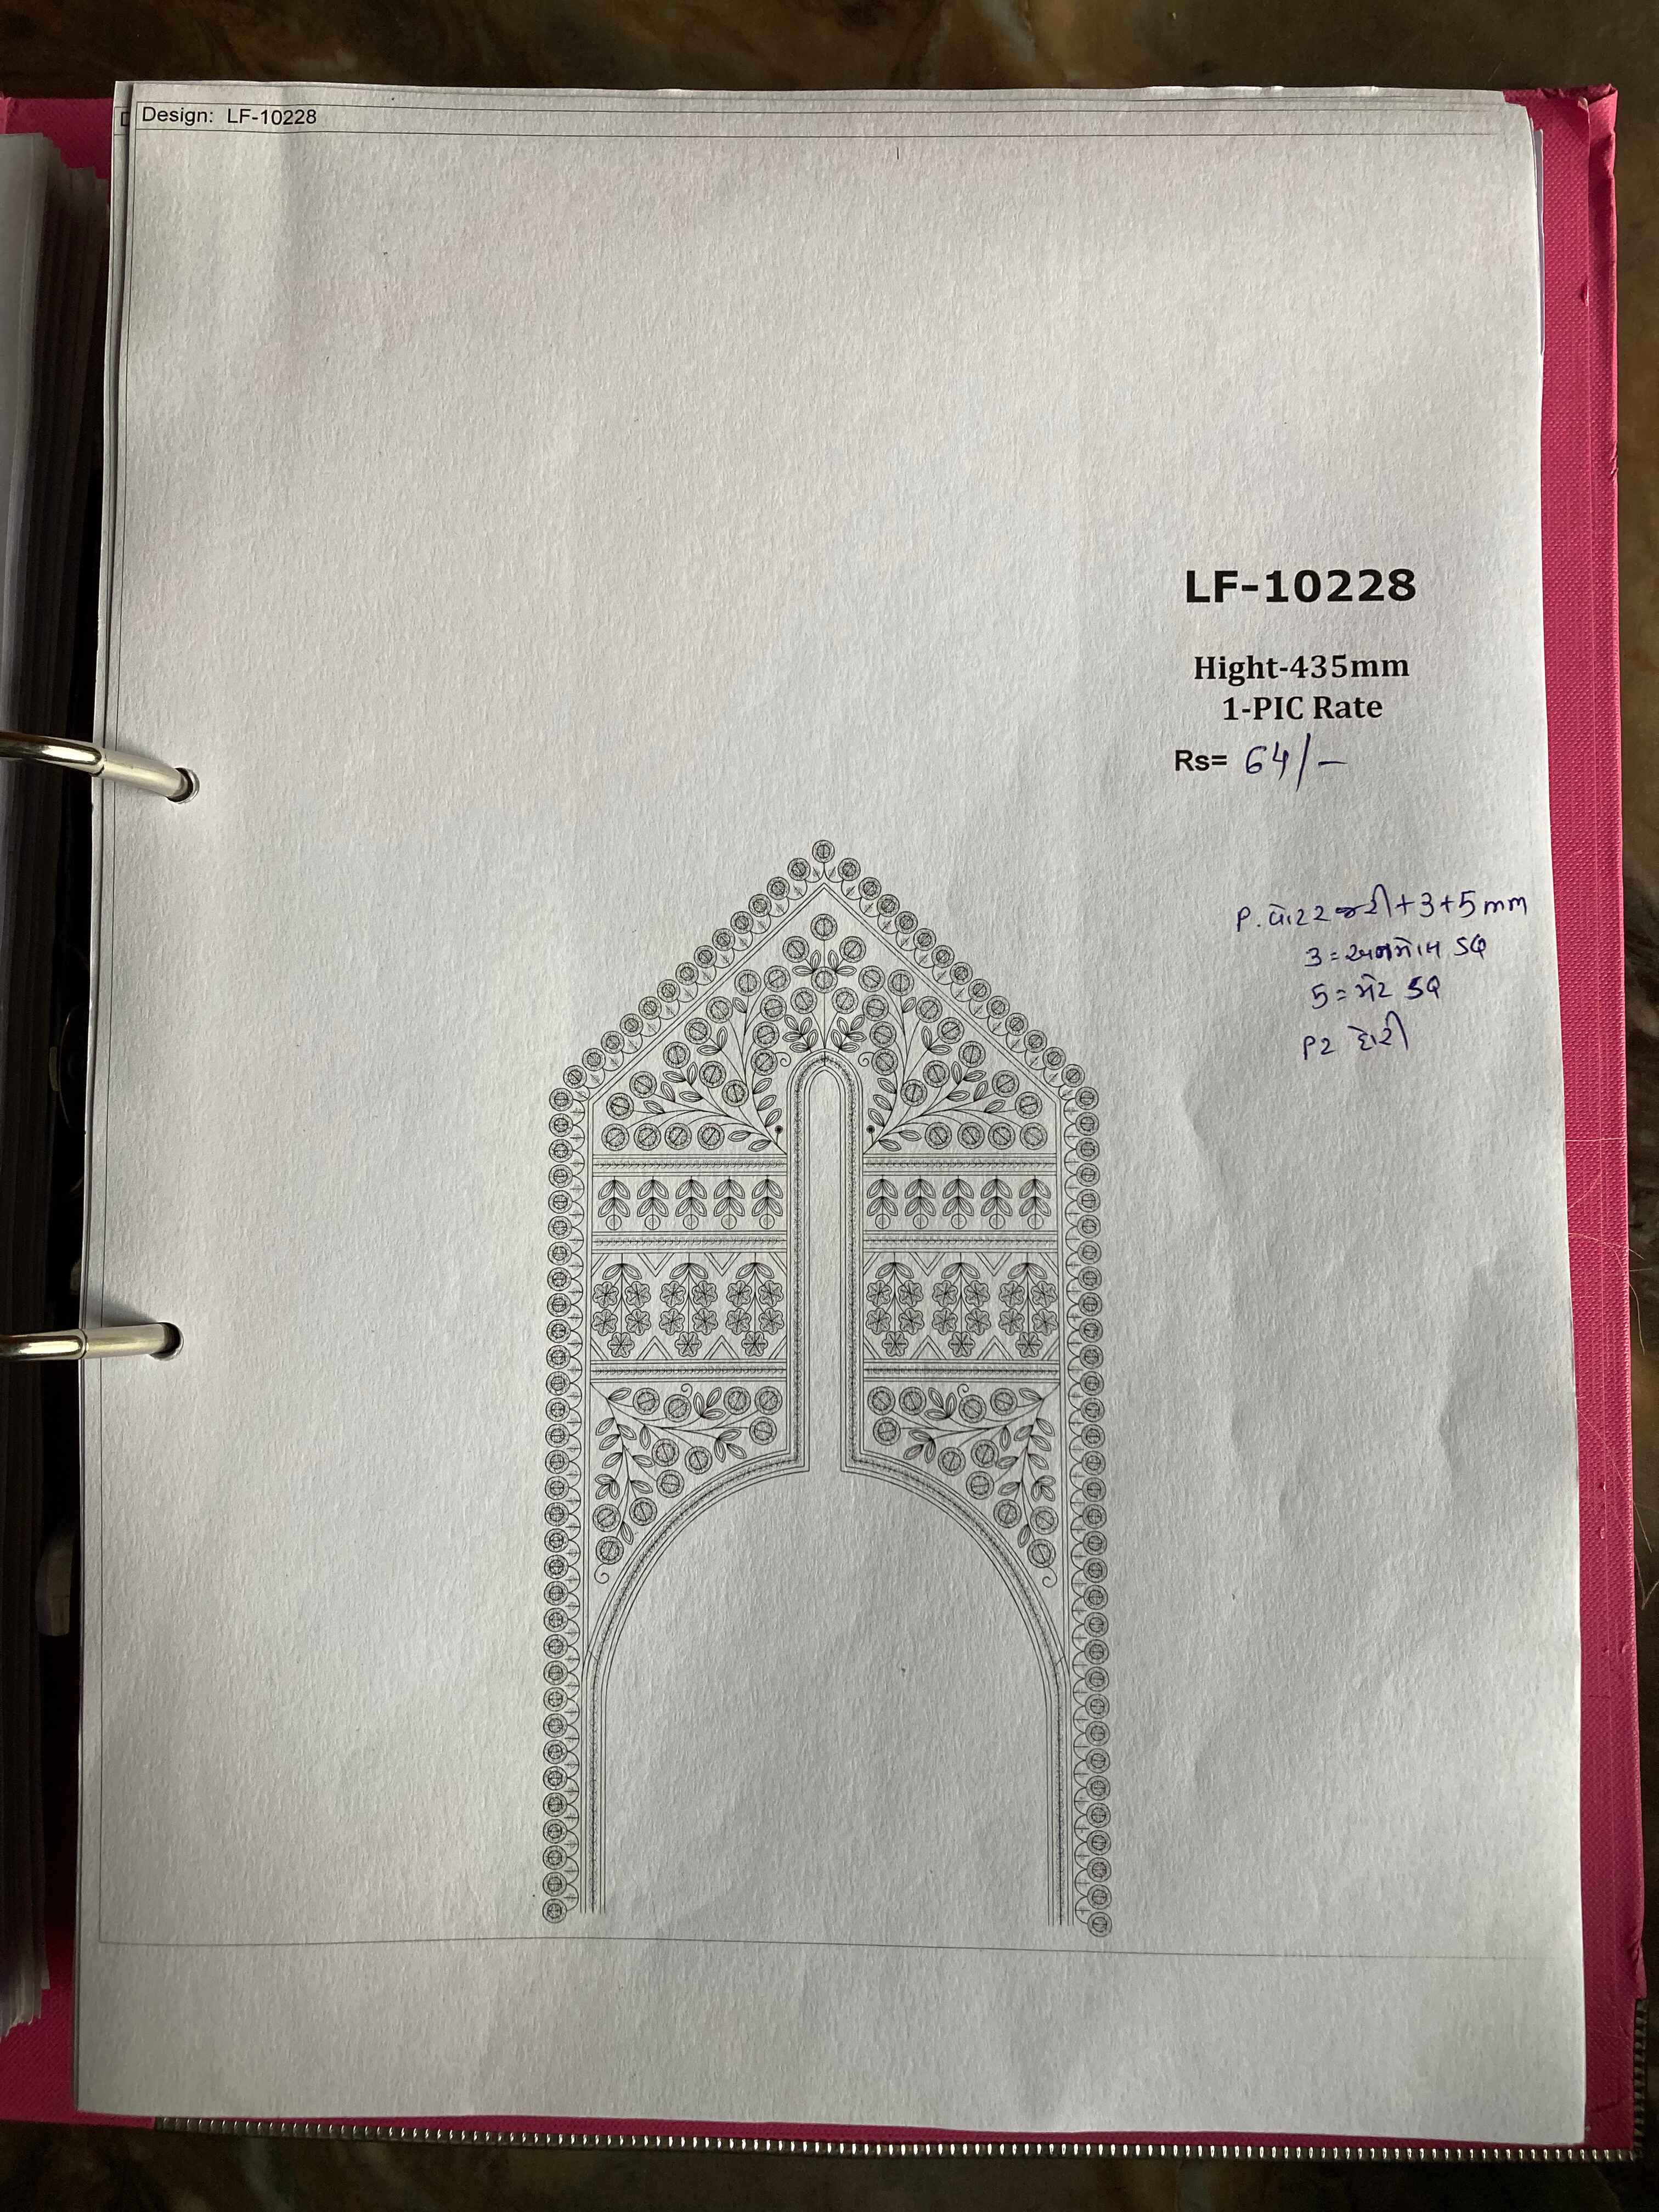 Design: LF-10228
LF-10228
Hight-435mm
1-PIC Rate
Rs= 64/-
P. વોટર જરી+3+5mm
3= અનમોલ SQ
5= મેટ SQ
P2 દોરી